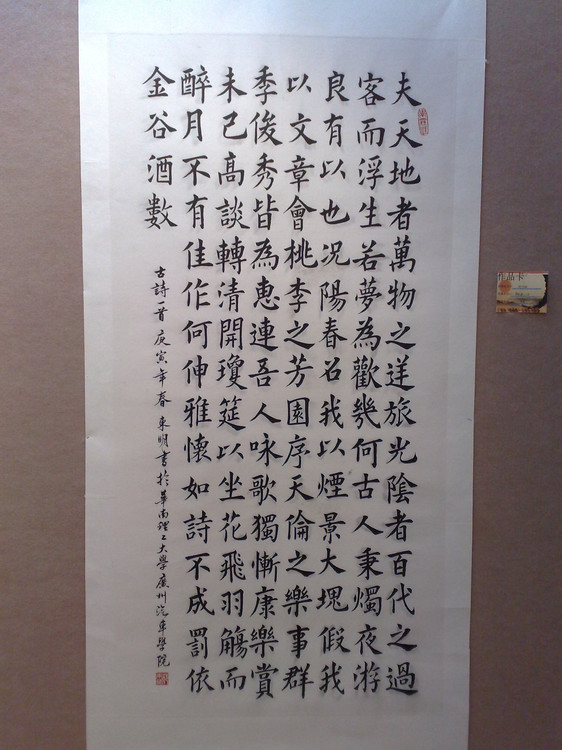 夫天地者萬物之逆旅光陰者百代之過
客而浮生若夢為歡幾何古人秉燭夜游
良有以也況陽春召我以煙景大塊假我
以文章會桃李之芳園序天倫之樂事群
季俊秀皆為惠連吾人咏歌獨慚康樂賞
未已高談轉清開瓊筵以坐花飛羽觴而
醉月不有佳作何伸雅懷如詩不成罰依
金谷酒數
古詩一首庚寅年春東明書於華南理工大學廣州汽車學院
作品卡